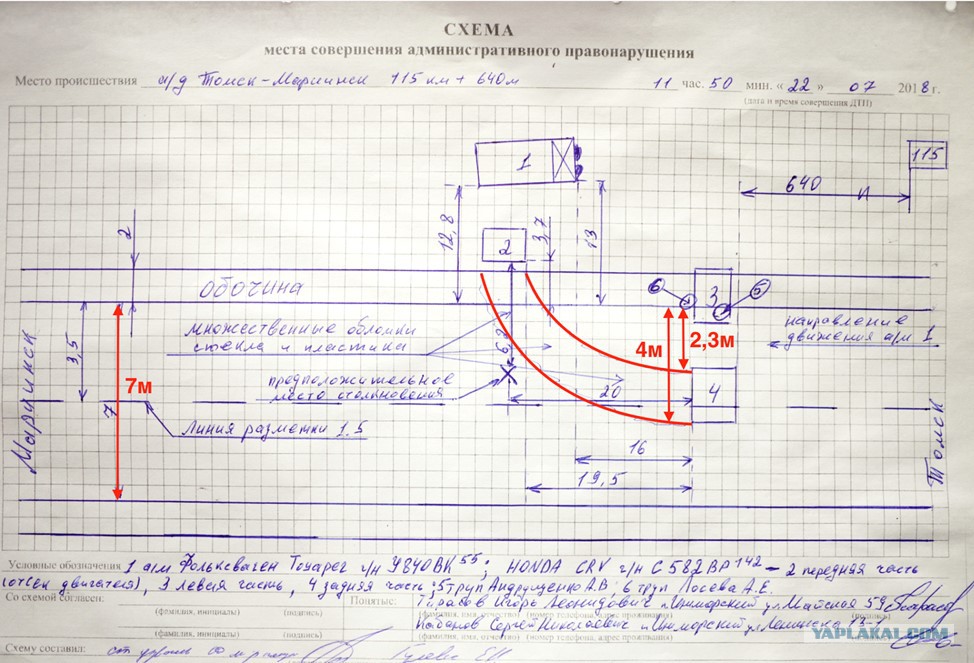 СХЕМА
места совершения административного правонарушения
Место происшествия а/д Томск-Мариинск 115 км + 640 м 11 час. 50 мин. «22» 07 2018 г.
(дата и время совершения ДТП)
1
115
640 м
2
12,8
2
3,7
13
Обочина
6
3
5
множественные обломки
стекла и пластика
направление
движения а/м 1
3,5
7м
6,2
4м
2,3м
предположительное
место столкновения
20
4
7
Линия разметки 1.5
Мариинск
Томск
16
19,5
Условные обозначения 1 а/м Фольксваген Туарег г/н У840ВК55; HONDA CRV г/н С582ВР142 – 2 передняя часть
(отсек двигателя), 3 левая часть, 4 задняя часть, 5 труп Андрущенко А.В, 6 труп Лосева А.Е.
Со схемой согласен: Понятые: Тарасов Игорь Леонидович Майская 59
(фамилия, инициалы) (подпись) (фамилия, имя, отчество) (номер телефона, адрес проживания)
Кабанов Сергей Николаевич 13-1
(фамилия, инициалы) (подпись) (фамилия, имя, отчество) (номер телефона, адрес проживания)
Схему составил:
YAPLAKAL.COM